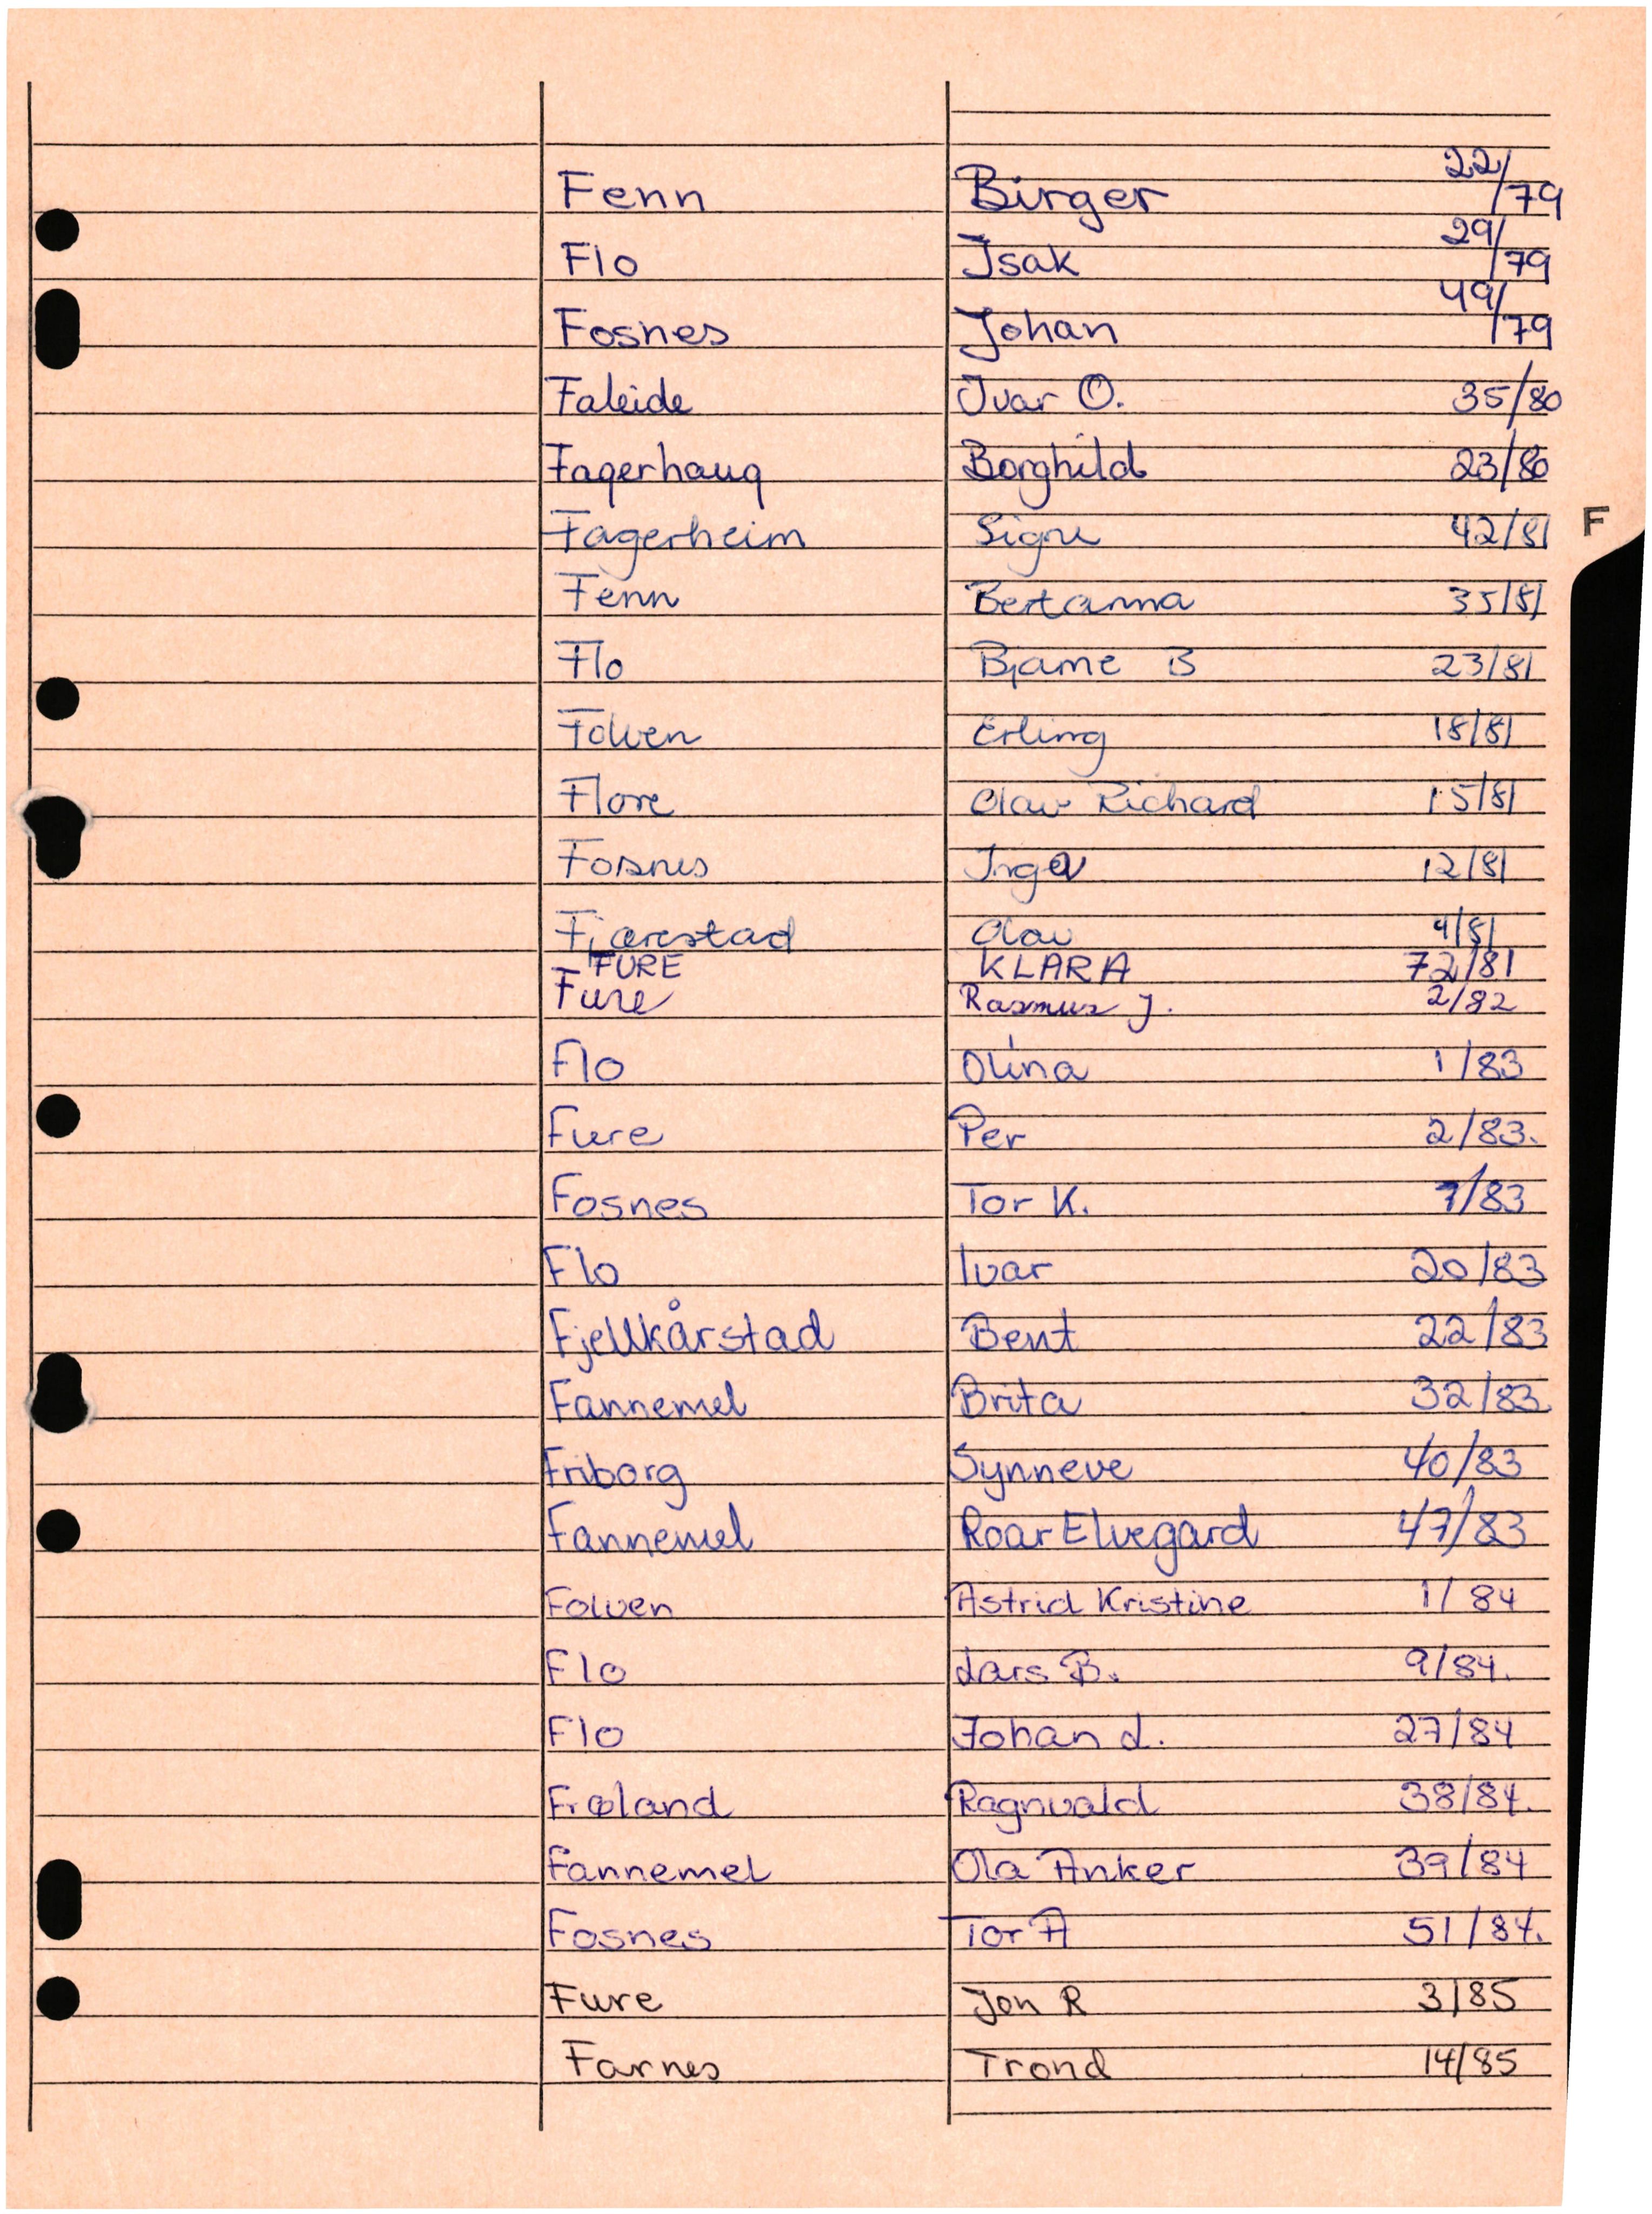 Fenn Birger 22/79
Flo Isak 29/79
Fosnes Johan 49/79
Faleide Ivar O. 35/80
Fagerhaug Borghild 23/80
Fagerheim Signe 42/81
F
Fenn Bertanna 35/81
Flo Bjarne B 23/81
Folven Erling 18/81
Flore Olav Richard 15/81
Fosnes Inga 12/81
Fjærestad Olav 4/81
FURE KLARA 72/81
Fure Rasmus J. 2/82
Flo Olina 1/83
Fure Per 2/83.
Fosnes Tor K. 7/83
Flo Ivar 20/83
Fjellkårstad Bent 22/83
Fannemel Brita 32/83
Friborg Synneve 40/83
Fannemel Roar Elvegard 47/83
Folven Astrid Kristine 1/84
Flo Lars B. 9/84.
Flo Johan L. 27/84
Frøland Ragnvald 38/84.
Fannemel Ola Anker 39/84
Fosnes Tor A 51/84.
Fure Jon R 3/85
Farnes Trond 14/85